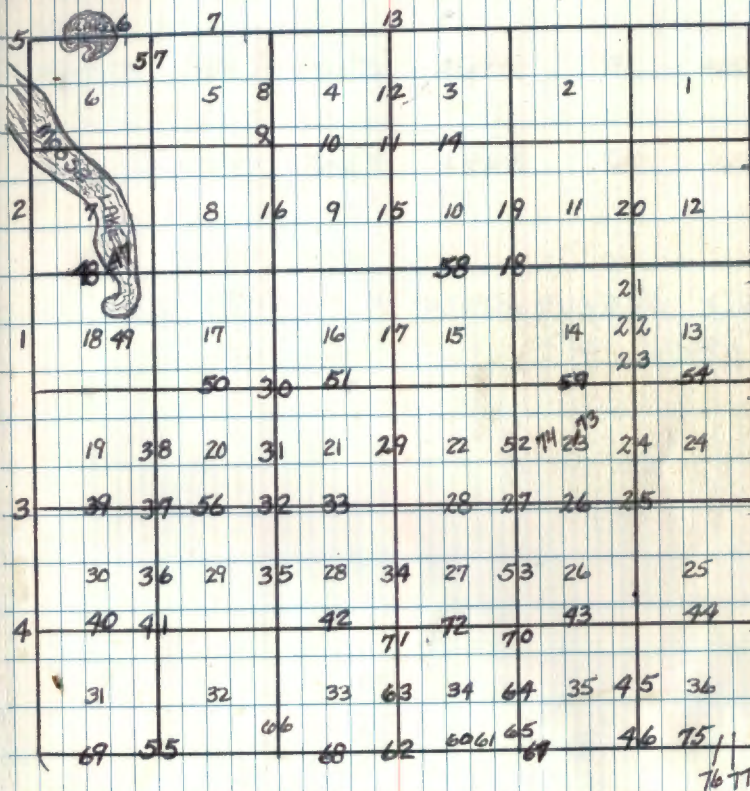 5 LAKE 6 7 13
57
6 5 8 4 12 3 2 1
9 10 11 14
MOOSE LAKE
2 7 8 16 9 15 10 19 11 20 12
48 47 58 18
21
1 18 49 17 16 17 15 14 22 13
23
50 30 51 59 54
73
19 38 20 31 21 29 22 52 74 23 24 24
3 39 37 56 32 33 28 27 26 25
30 36 29 35 28 34 27 53 26 25
4 40 41 42 72 43 44
71 70
31 32 33 63 34 64 35 45 36
66 65
69 55 68 62 60 61 67 46 75
76 77